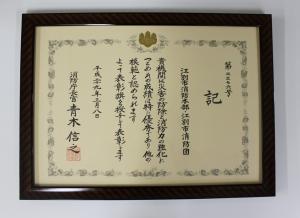 第 号
記
江別市消防本部江別市消防団
貴機関は災害の防除と消防力の強化に
つとめその成績は特に優秀であり他の
模範と認められます
よって表彰旗を授与して表彰します
平成二十九年三月八日
消防庁長官 青木信之